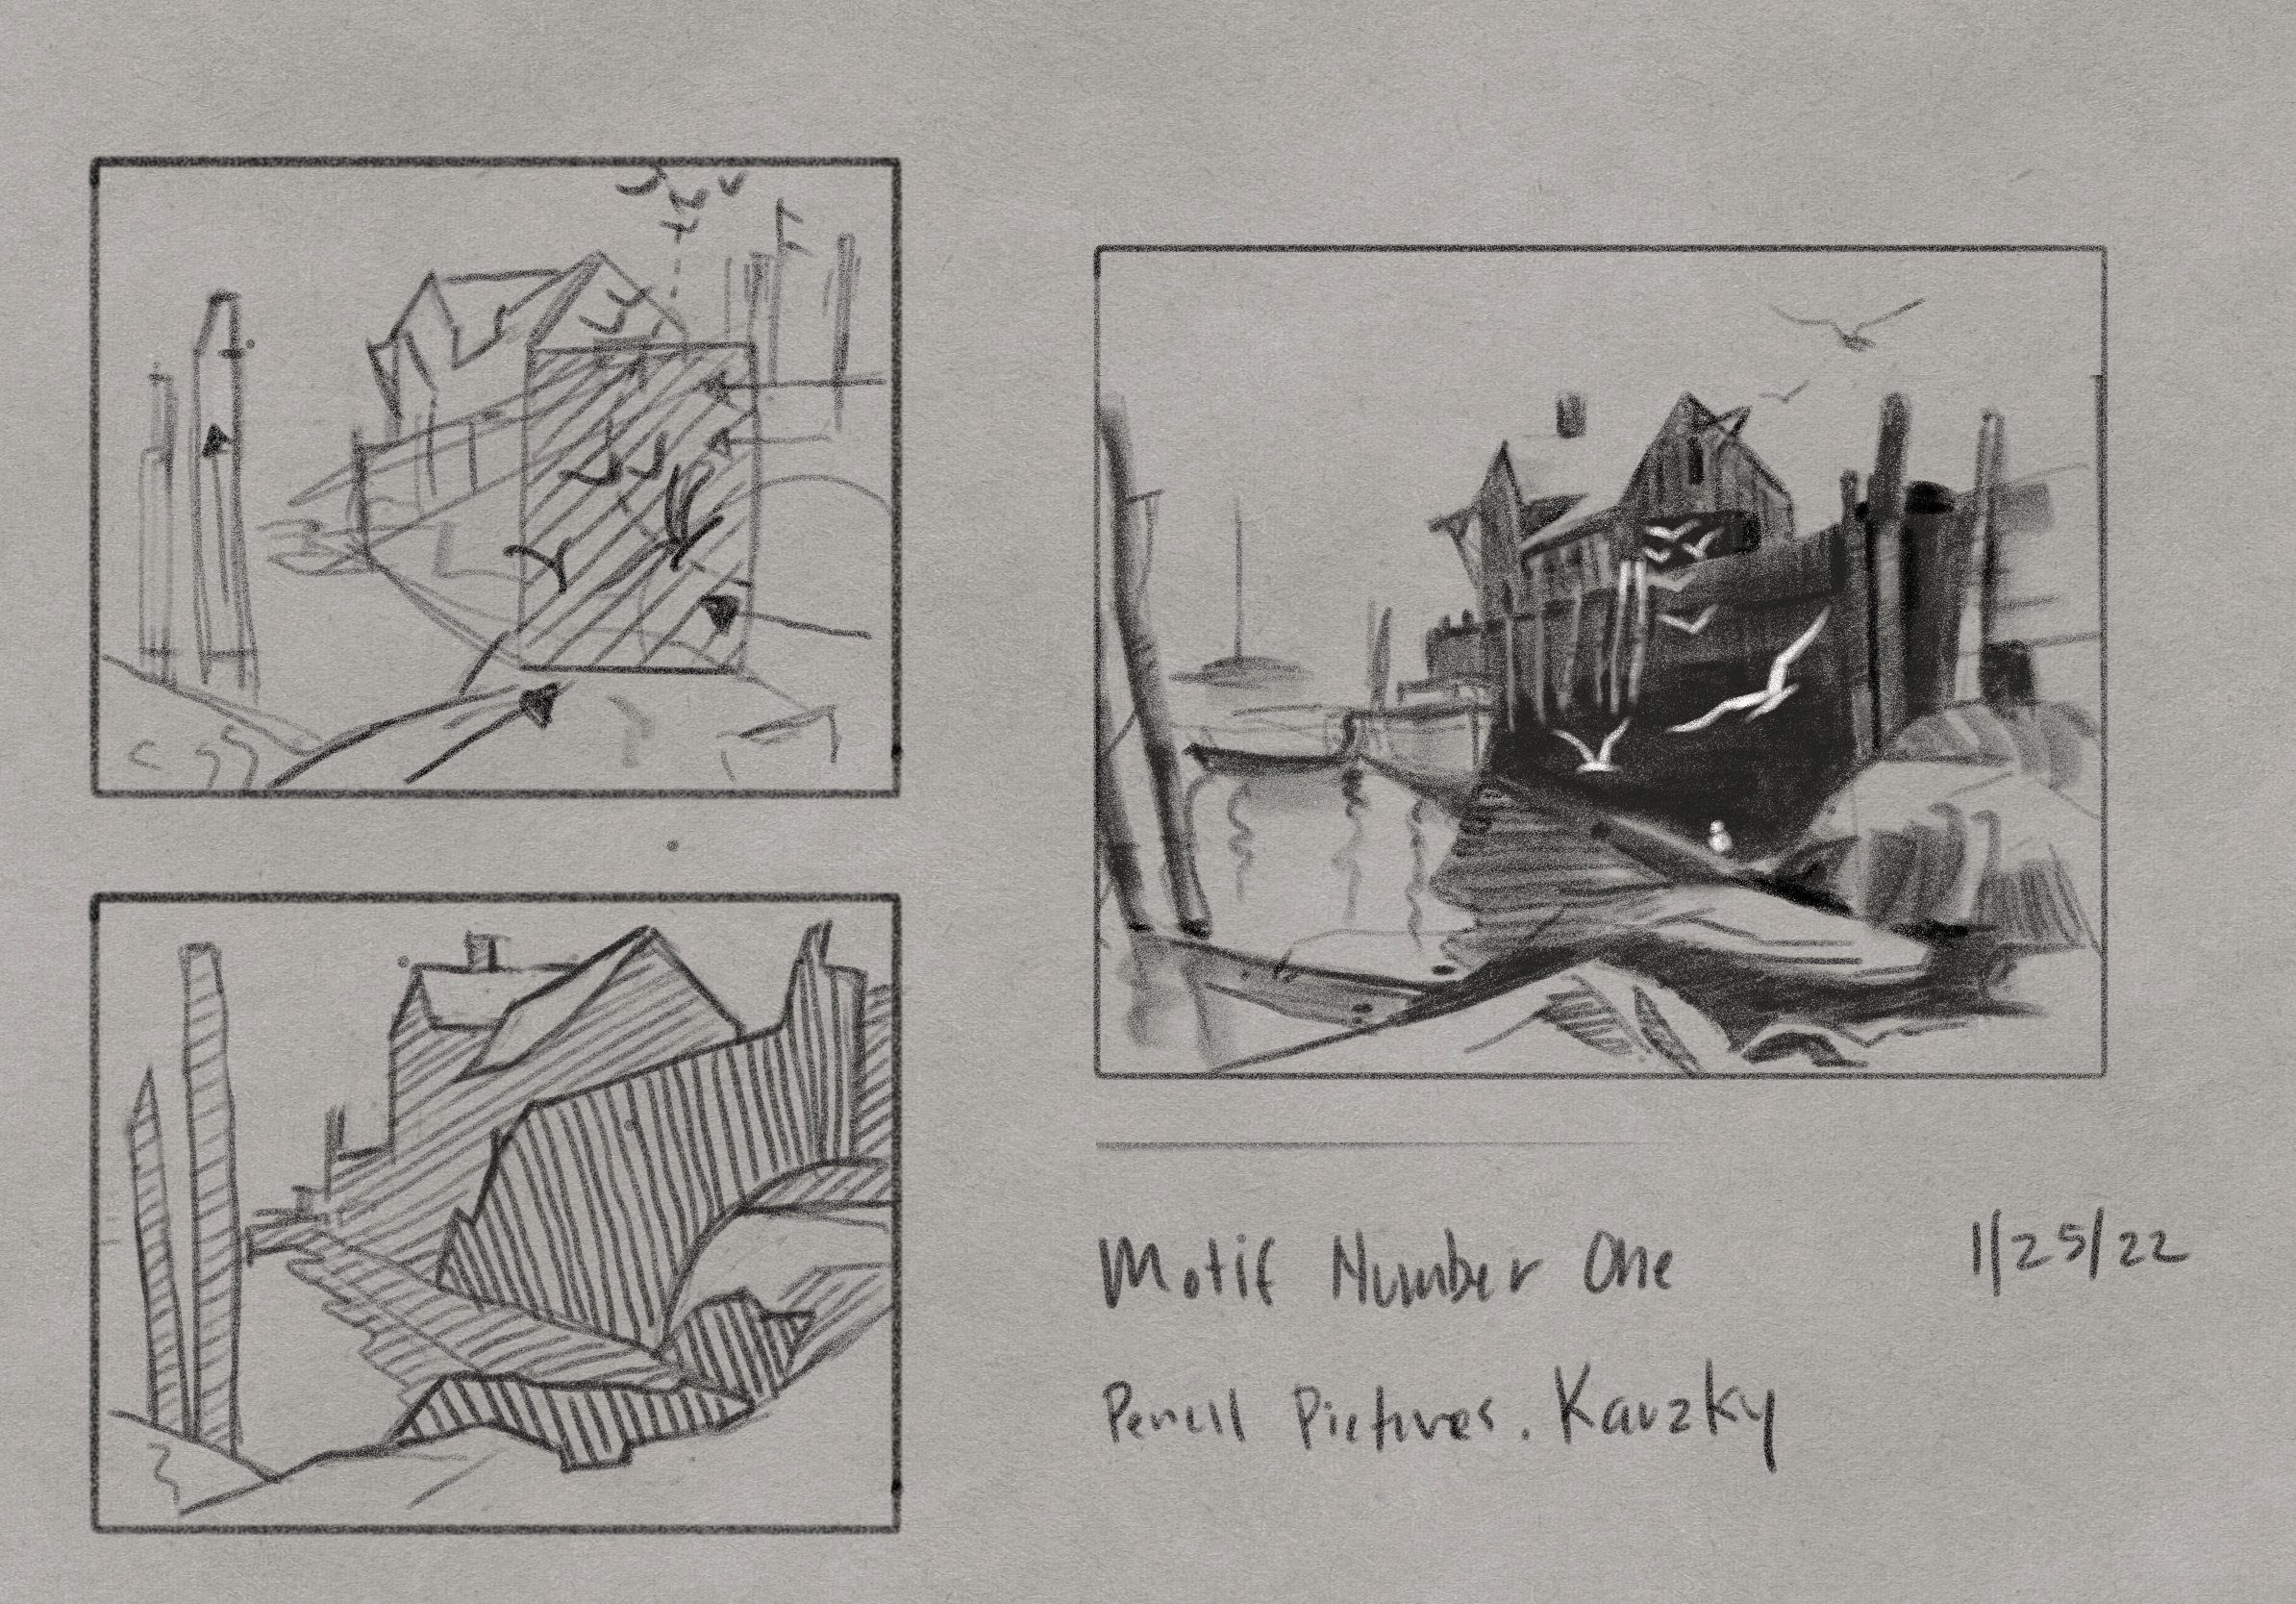 Motif Number One
1/25/22
Pencil Pictures. Kauzky